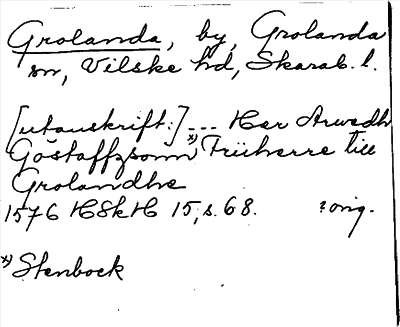 Grolanda, by, Grolanda
sn, Vilske hd, Skarab. l.
[utanskrift:] --- Her Arwedh
Göstaffzsonn x) Früherre till
Grolandhe
1576 HSkH 15, s. 68. ? orig.
x) Stenbock